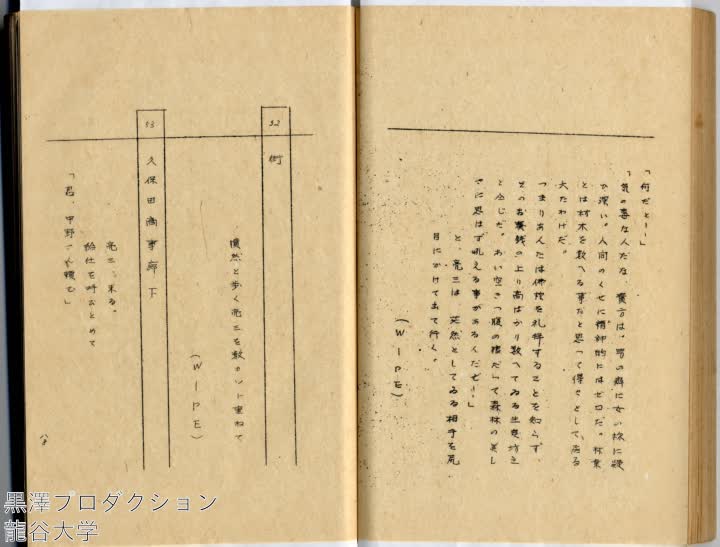 「何だと！」
「気の毒な人だな 貴方は、男の癖に女の様に疑
り深い。人間のくせに精神的にはゼロだ。林業
とは材木を数へる事だと思って得々としてゐる
大たわけだ。
つまりあんたは佛像を礼拝することを知らず、
そのお賽銭の上り高ばかり数へてゐる生臭坊主
と同じだ。 空きっ腹の 森林の美し
さに思はず吼える事があるんだぞ！」
と、亮三は、茫然としてゐる相手を尻
目にかけて出て行く。
(WIPE)
52 街
憤然と歩く亮三を数カット重ねて
(WIPE)
53 久保田商事廊下
亮三、来る。
給仕を呼びとめて
「君、中野 頼む」
黒澤プロダクション
龍谷大学